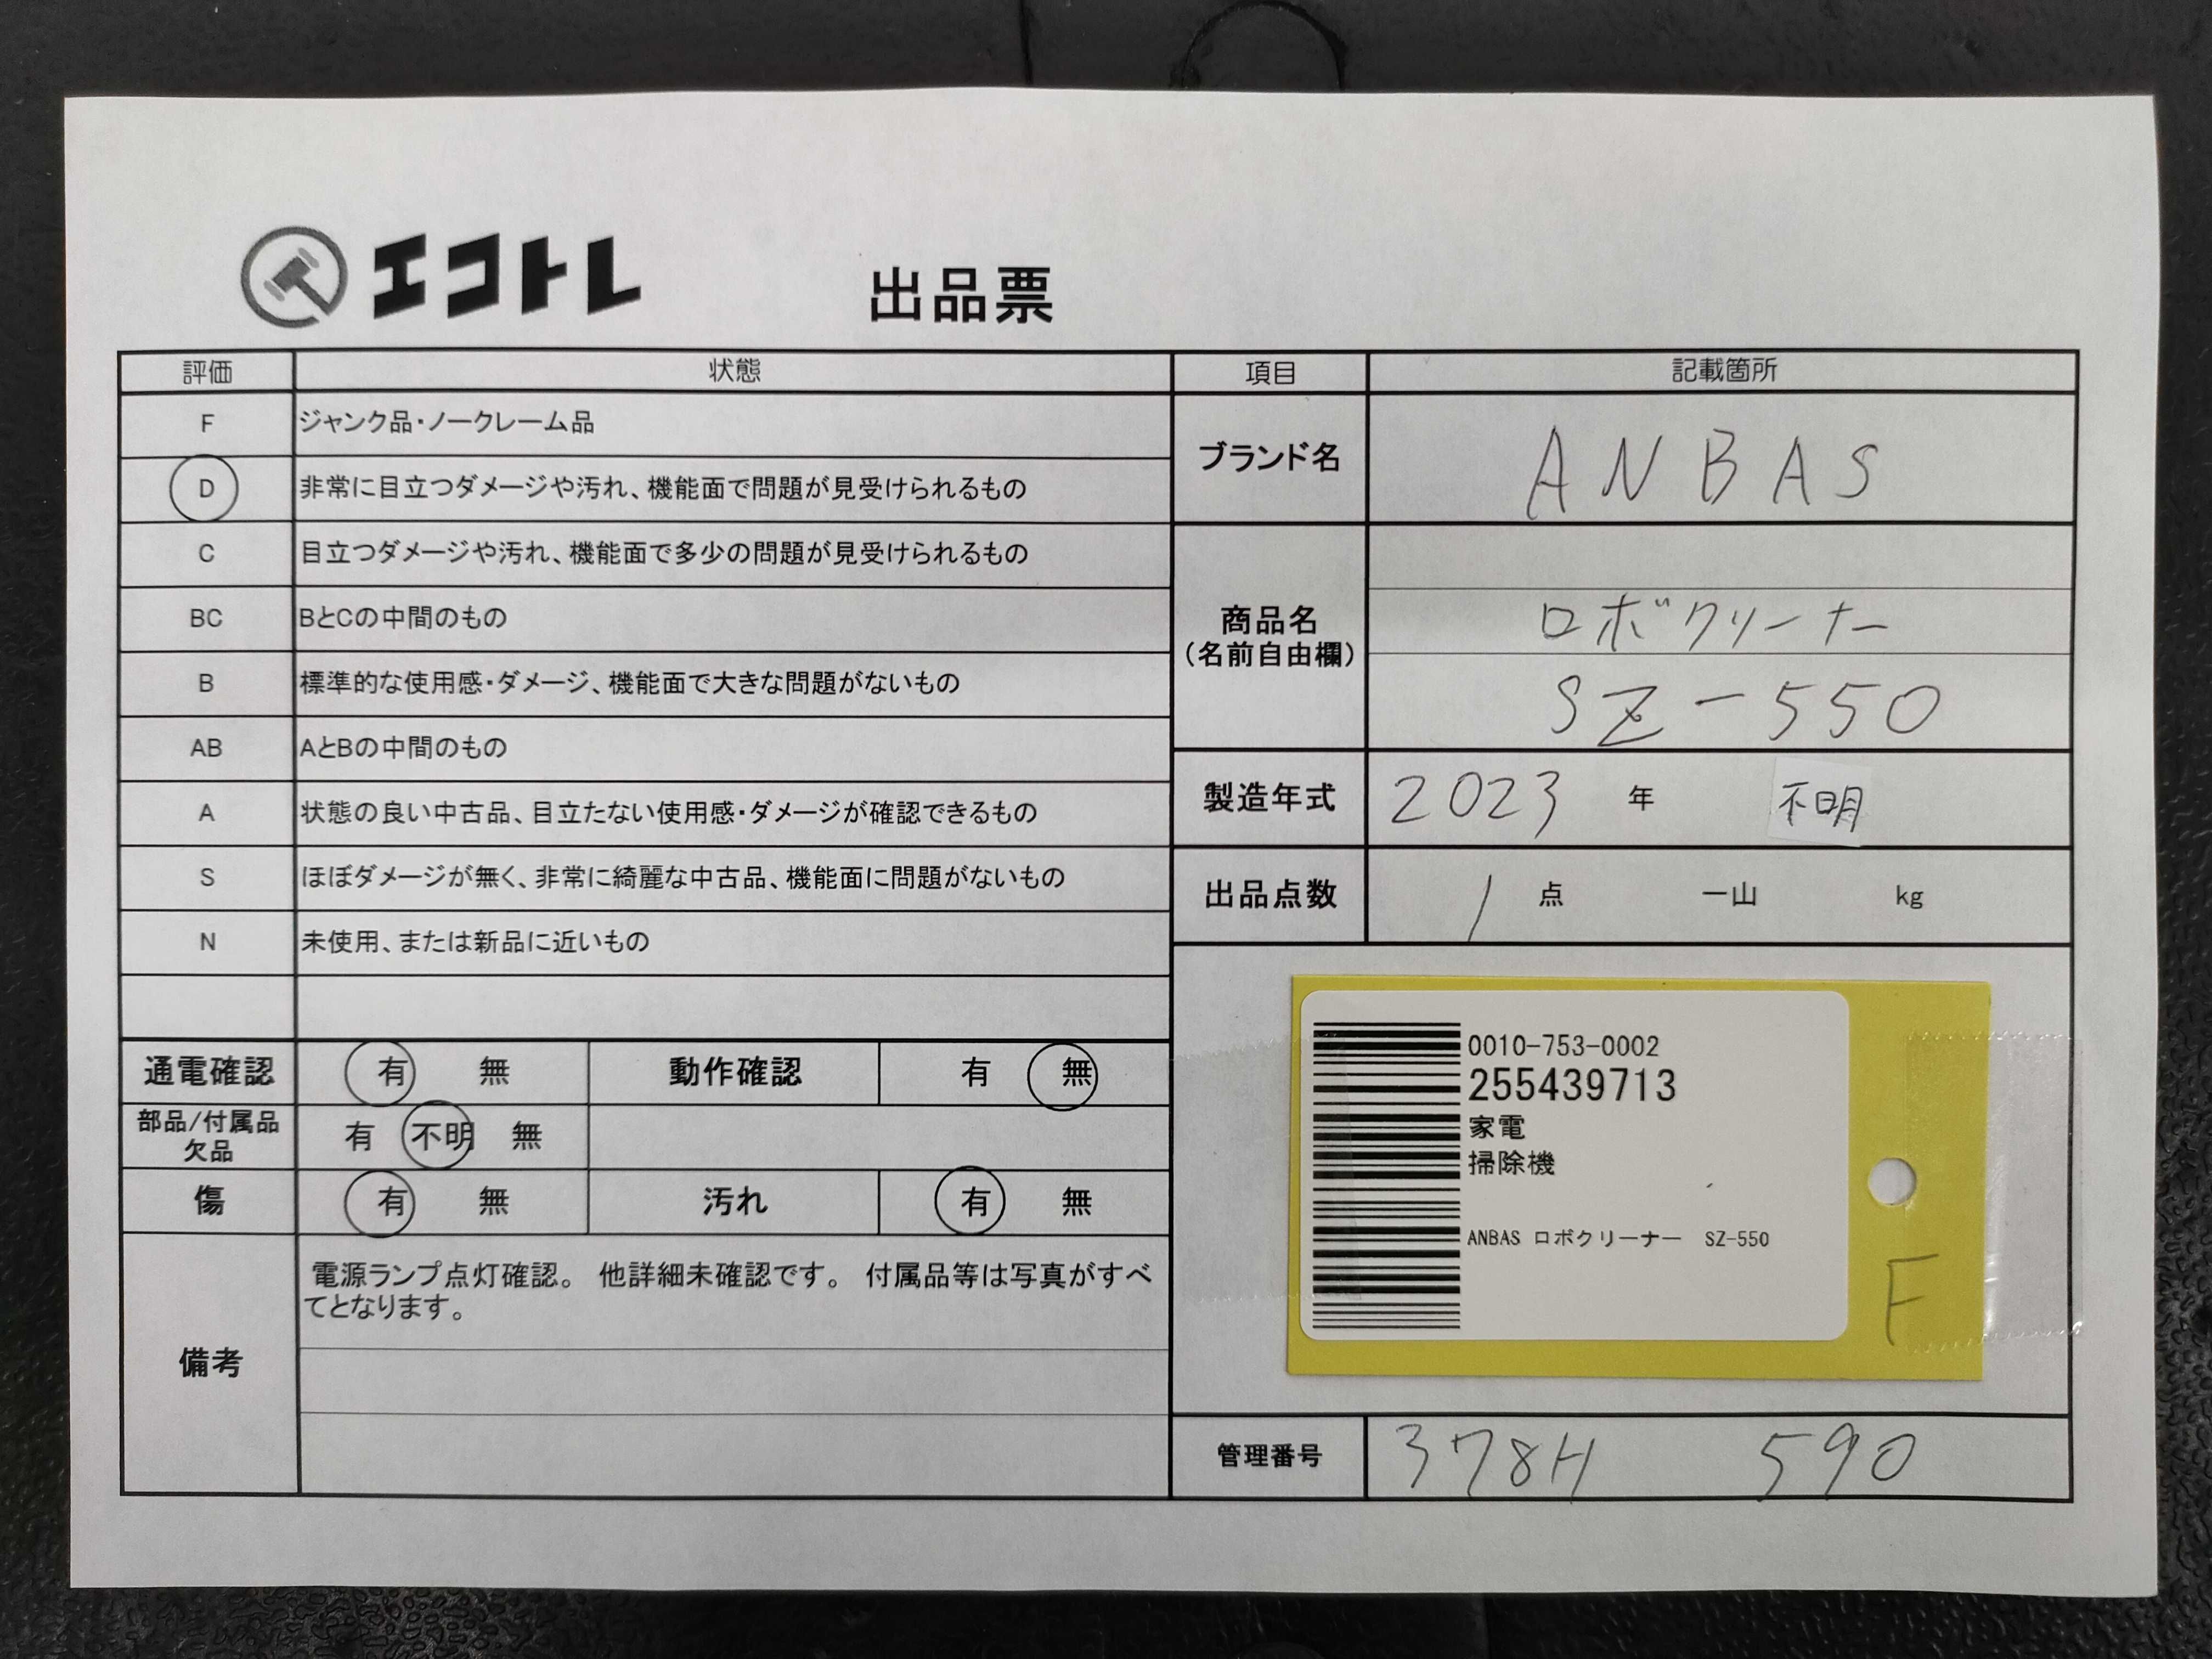 エコトレ
出品票
評価 状態
F ジャンク品・ノークレーム品
D 非常に目立つダメージや汚れ、機能面で問題が見受けられるもの
C 目立つダメージや汚れ、機能面で多少の問題が見受けられるもの
BC BとCの中間のもの
B 標準的な使用感・ダメージ、機能面で大きな問題がないもの
AB AとBの中間のもの
A 状態の良い中古品、目立たない使用感・ダメージが確認できるもの
S ほぼダメージが無く、非常に綺麗な中古品、機能面に問題がないもの
N 未使用、または新品に近いもの
通電確認 有 無 動作確認 有 無
部品/付属品
欠品
有 不明 無
傷 有 無 汚れ 有 無
備考
電源ランプ点灯確認。 他詳細未確認です。 付属品等は写真がすべ
てとなります。
項目 記載箇所
ブランド名 ANBAS
商品名
(名前自由欄)
ロボクリーナー
SZ-550
製造年式 2023 年 不明
出品点数 1 点 一山 kg
0010-753-0002
255439713
家電
掃除機
ANBAS ロボクリーナー SZ-550
F
管理番号 378H 590